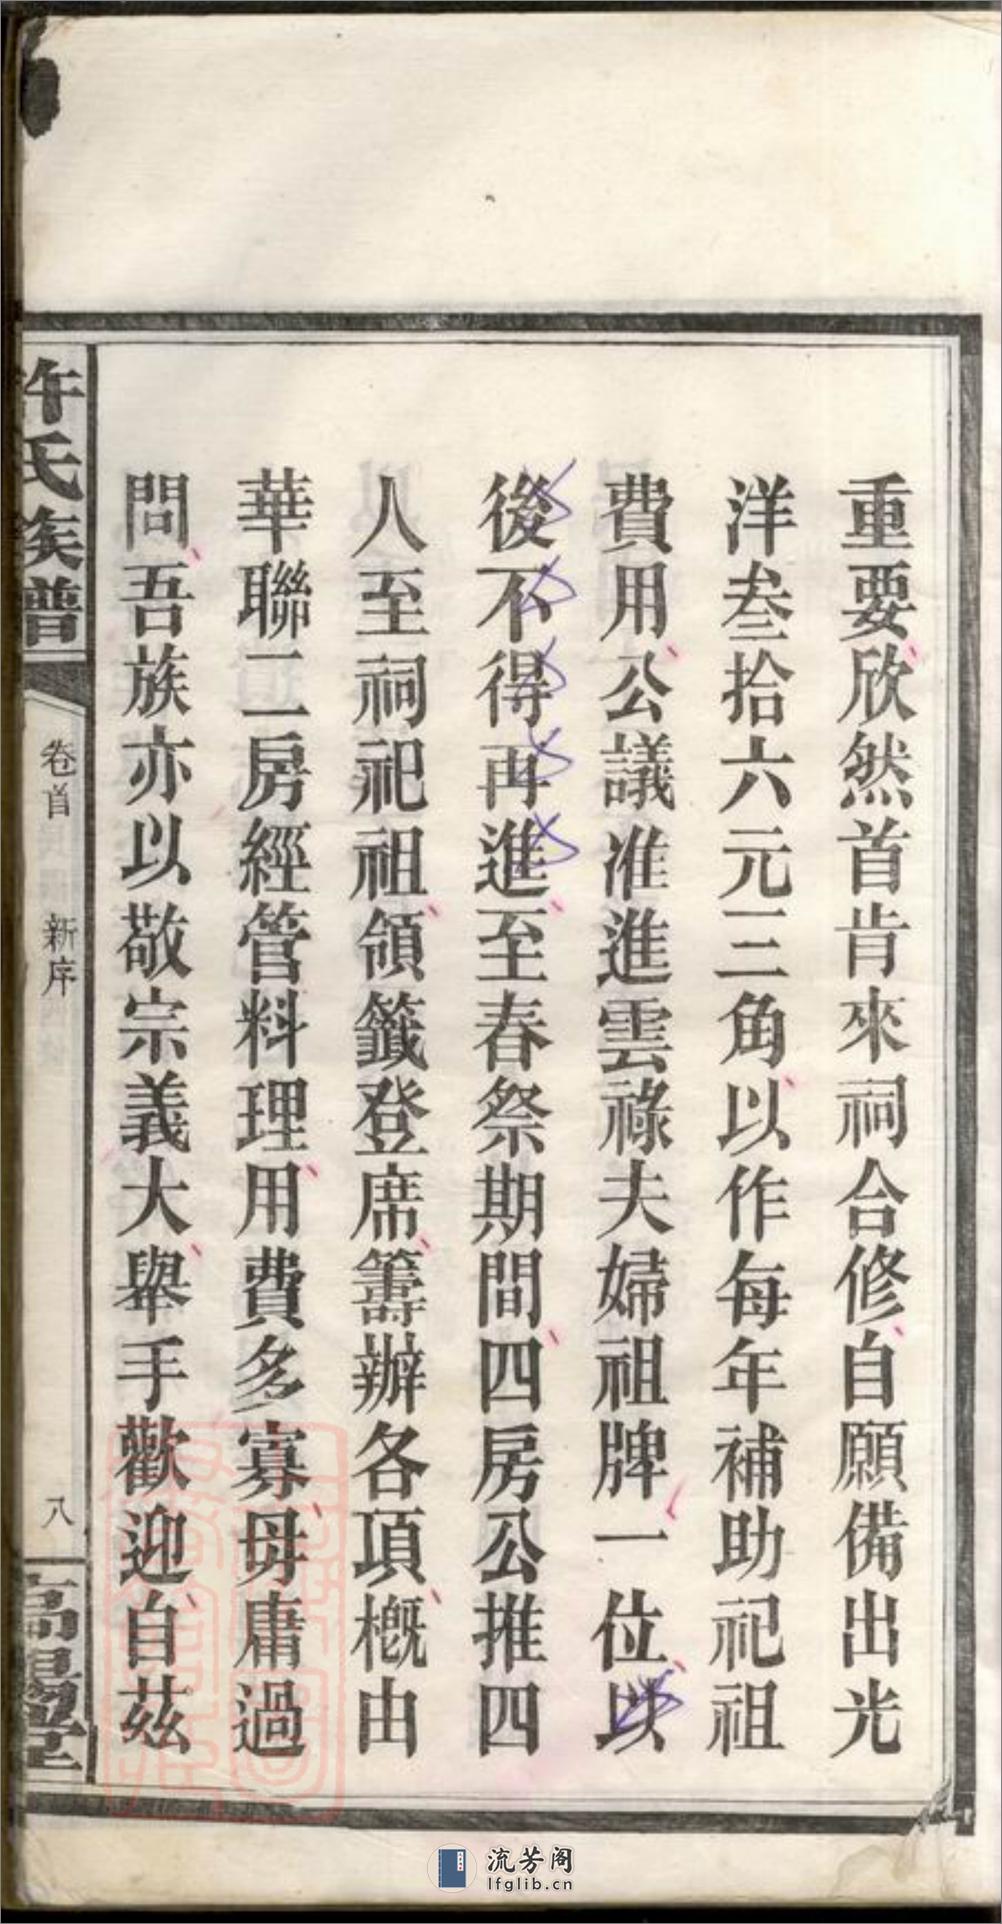 重要欣然首肯來祠合修自願備出光
洋叁拾六元三角以作每年補助祀祖
費用公議准進雲祿夫婦祖牌一位以
後不得再進至春祭期間四房公推四
人至祠祀祖領籤登席籌辦各項概由
華聯二房經管料理用費多寡毋庸過
問吾族亦以敬宗義大舉手歡迎自茲
許氏族譜
卷首
新序
八
高陽堂
流芳阁
lfglib.cn